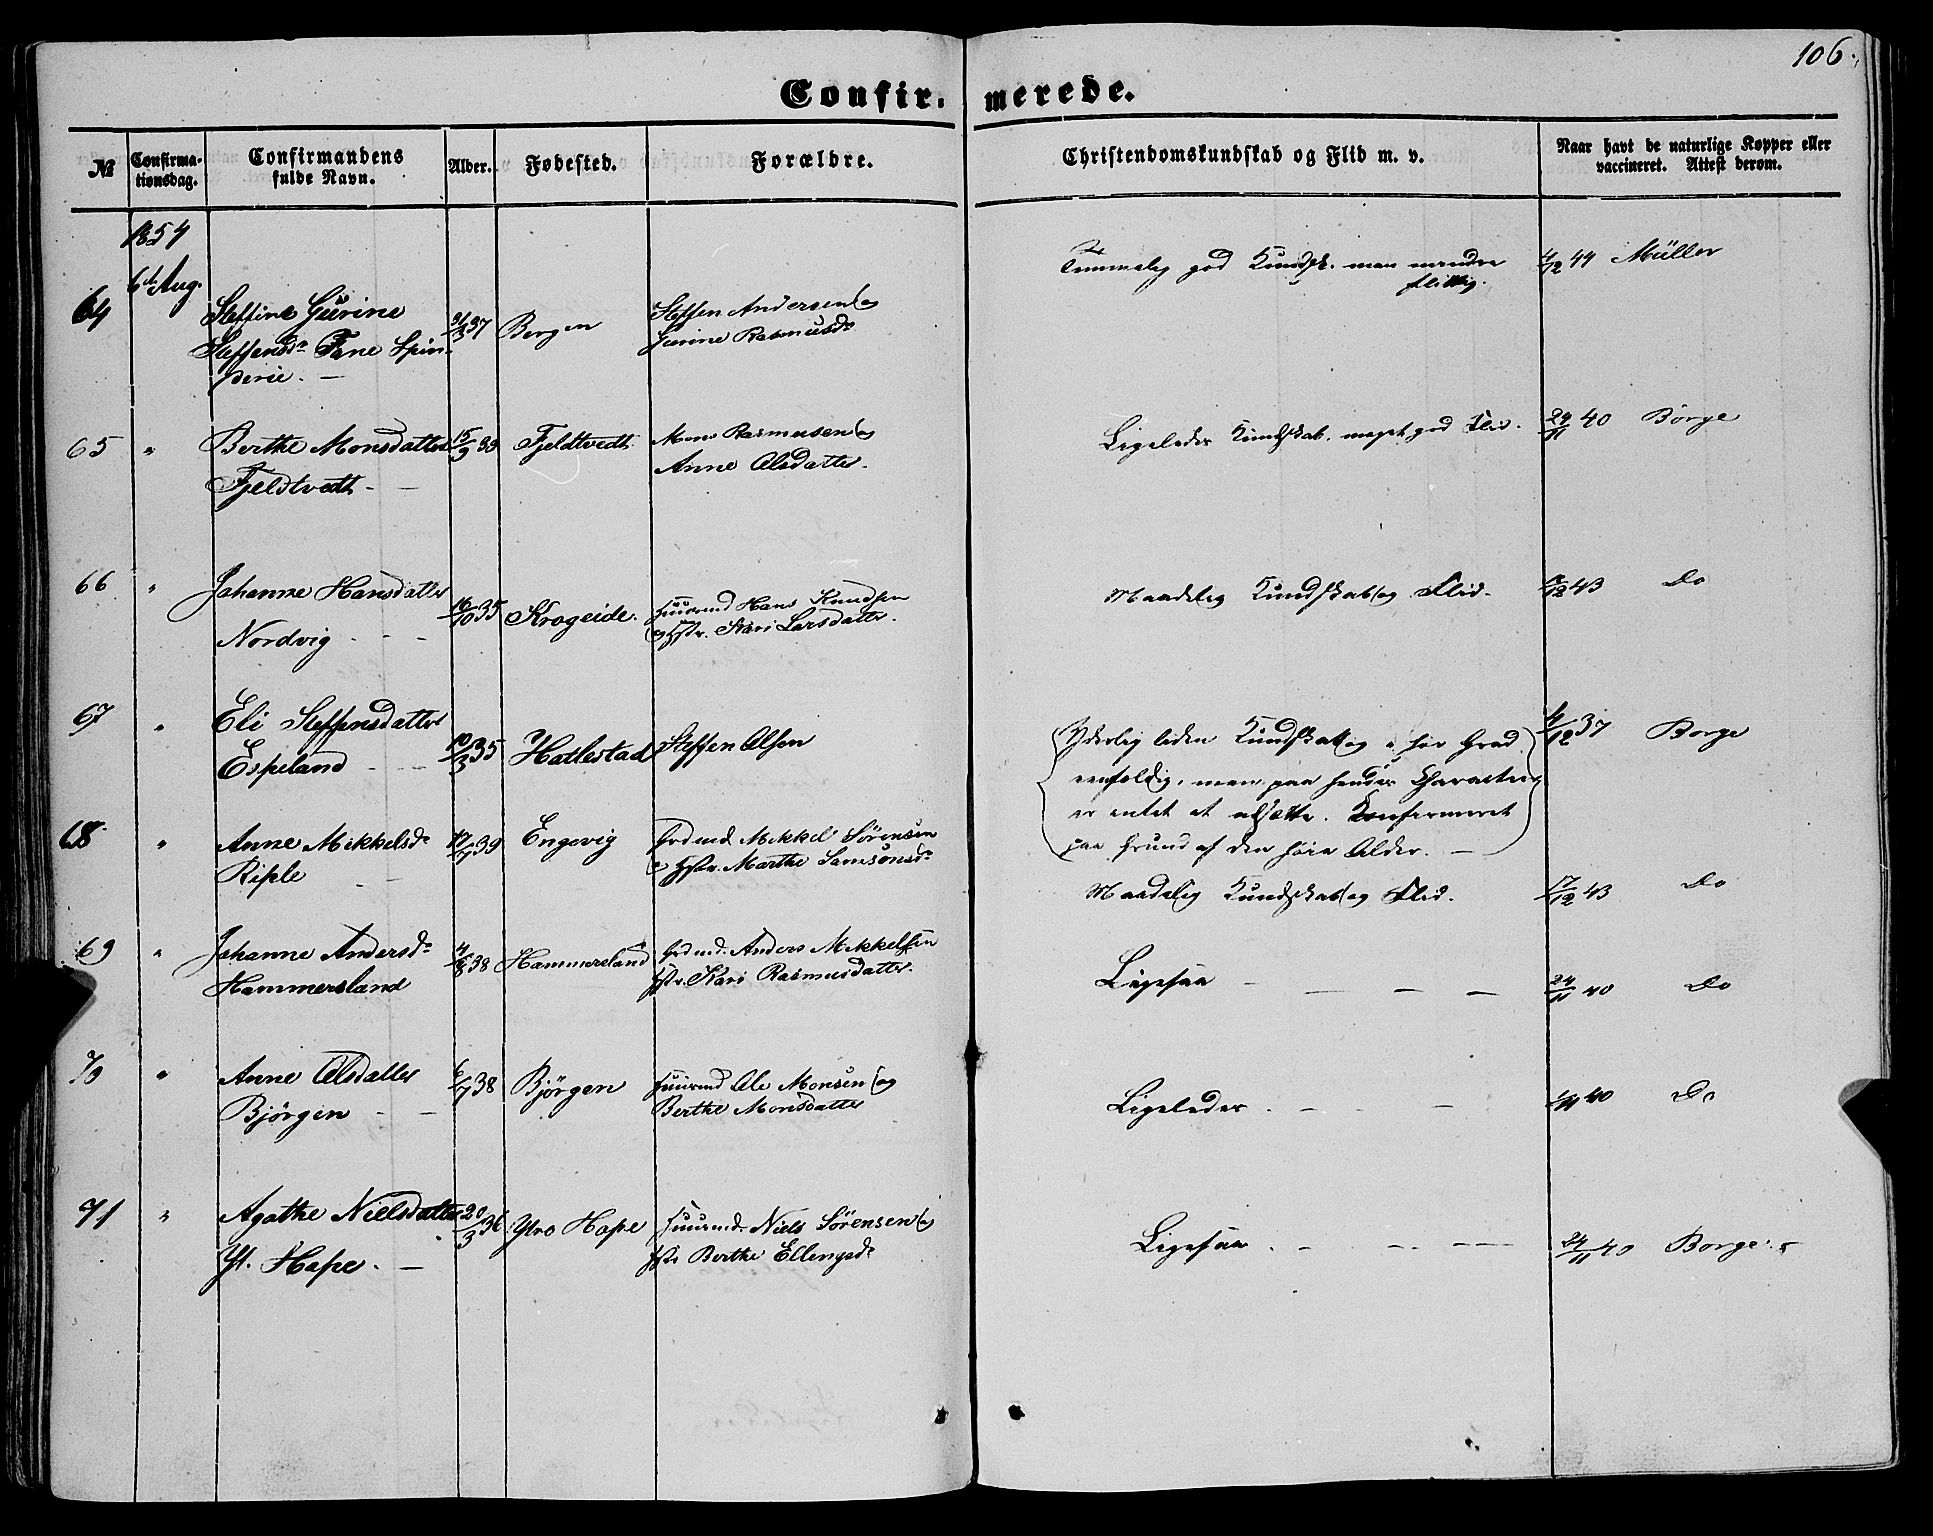 106.
Confir- merede.
No
Confirma-
tionsdag.
Confirmandens
fulde Navn.
Alder.
Fødested.
Forældre.
Christendomskundskab og Flid m. v.
Naar havt de naturlige Kopper eller
vaccineret. Attest derom.
1854
6te Aug.
64
Steffine Gurine
Steffensdr Fane Spin-
derie. —
37 Bergen
Steffen Andersen og
Gurine Rasmusdr
Temmelig god Kundsk. men mindre
flittig.
44 Müller
65 " Berthe Monsdatter
Fjeldtvedt — —
15/9 39 Fjeldtvedt
Mons Rasmusen og
Anne Olsdatter.
Ligeledes Kundskab. meget god Flid.
24/11 40 Børge
66 " Johanne Hansdatter
Nordvig — —
16/10 35 Krogeide.
Huusmd Hans Knudsen
og Hstr. Kari Larsdatter.
Maadelig Kundskab og Flid.
43 Do
67 " Eli Steffensdatter
Espeland — —
10/3 35 Hatlestad
Steffen Olsen
Yderlig liden Kundskab og i høi Grad
eenfoldig, men paa hendes Character
er intet at udsætte. Konfirmeret
paa Grund af den høie Alder. —
37 Borge
68 " Anne Mikkelsdr
Riple —
39 Engevig
Grdmd. Mikkel Sørensen
og Hstr. Marthe Samsonsdr
Maadelig Kundskab og Flid.
17/12 43 Do
69 " Johanne Andersdr
Hammersland
4/8 38 Hammersland
Grdmd. Anders Mikkelsen
Hstr. Kari Rasmusdatter.
Ligesaa — — — —
24/11 40 Do
70 " Anne Olsdatter
Bjørgen — —
6/7 38 Bjørgen
Huusmd Ole Monsen og
Berthe Monsdatter
Ligeledes. — — —
40 Do
71 " Agathe Nielsdatter
Yt. Hope. —
20/3 36 Ytre Hope
Huusmd. Niels Sørensen og
Hstr Berthe Ellingsdr
Ligesaa. — — —
24/11 40 Borge.